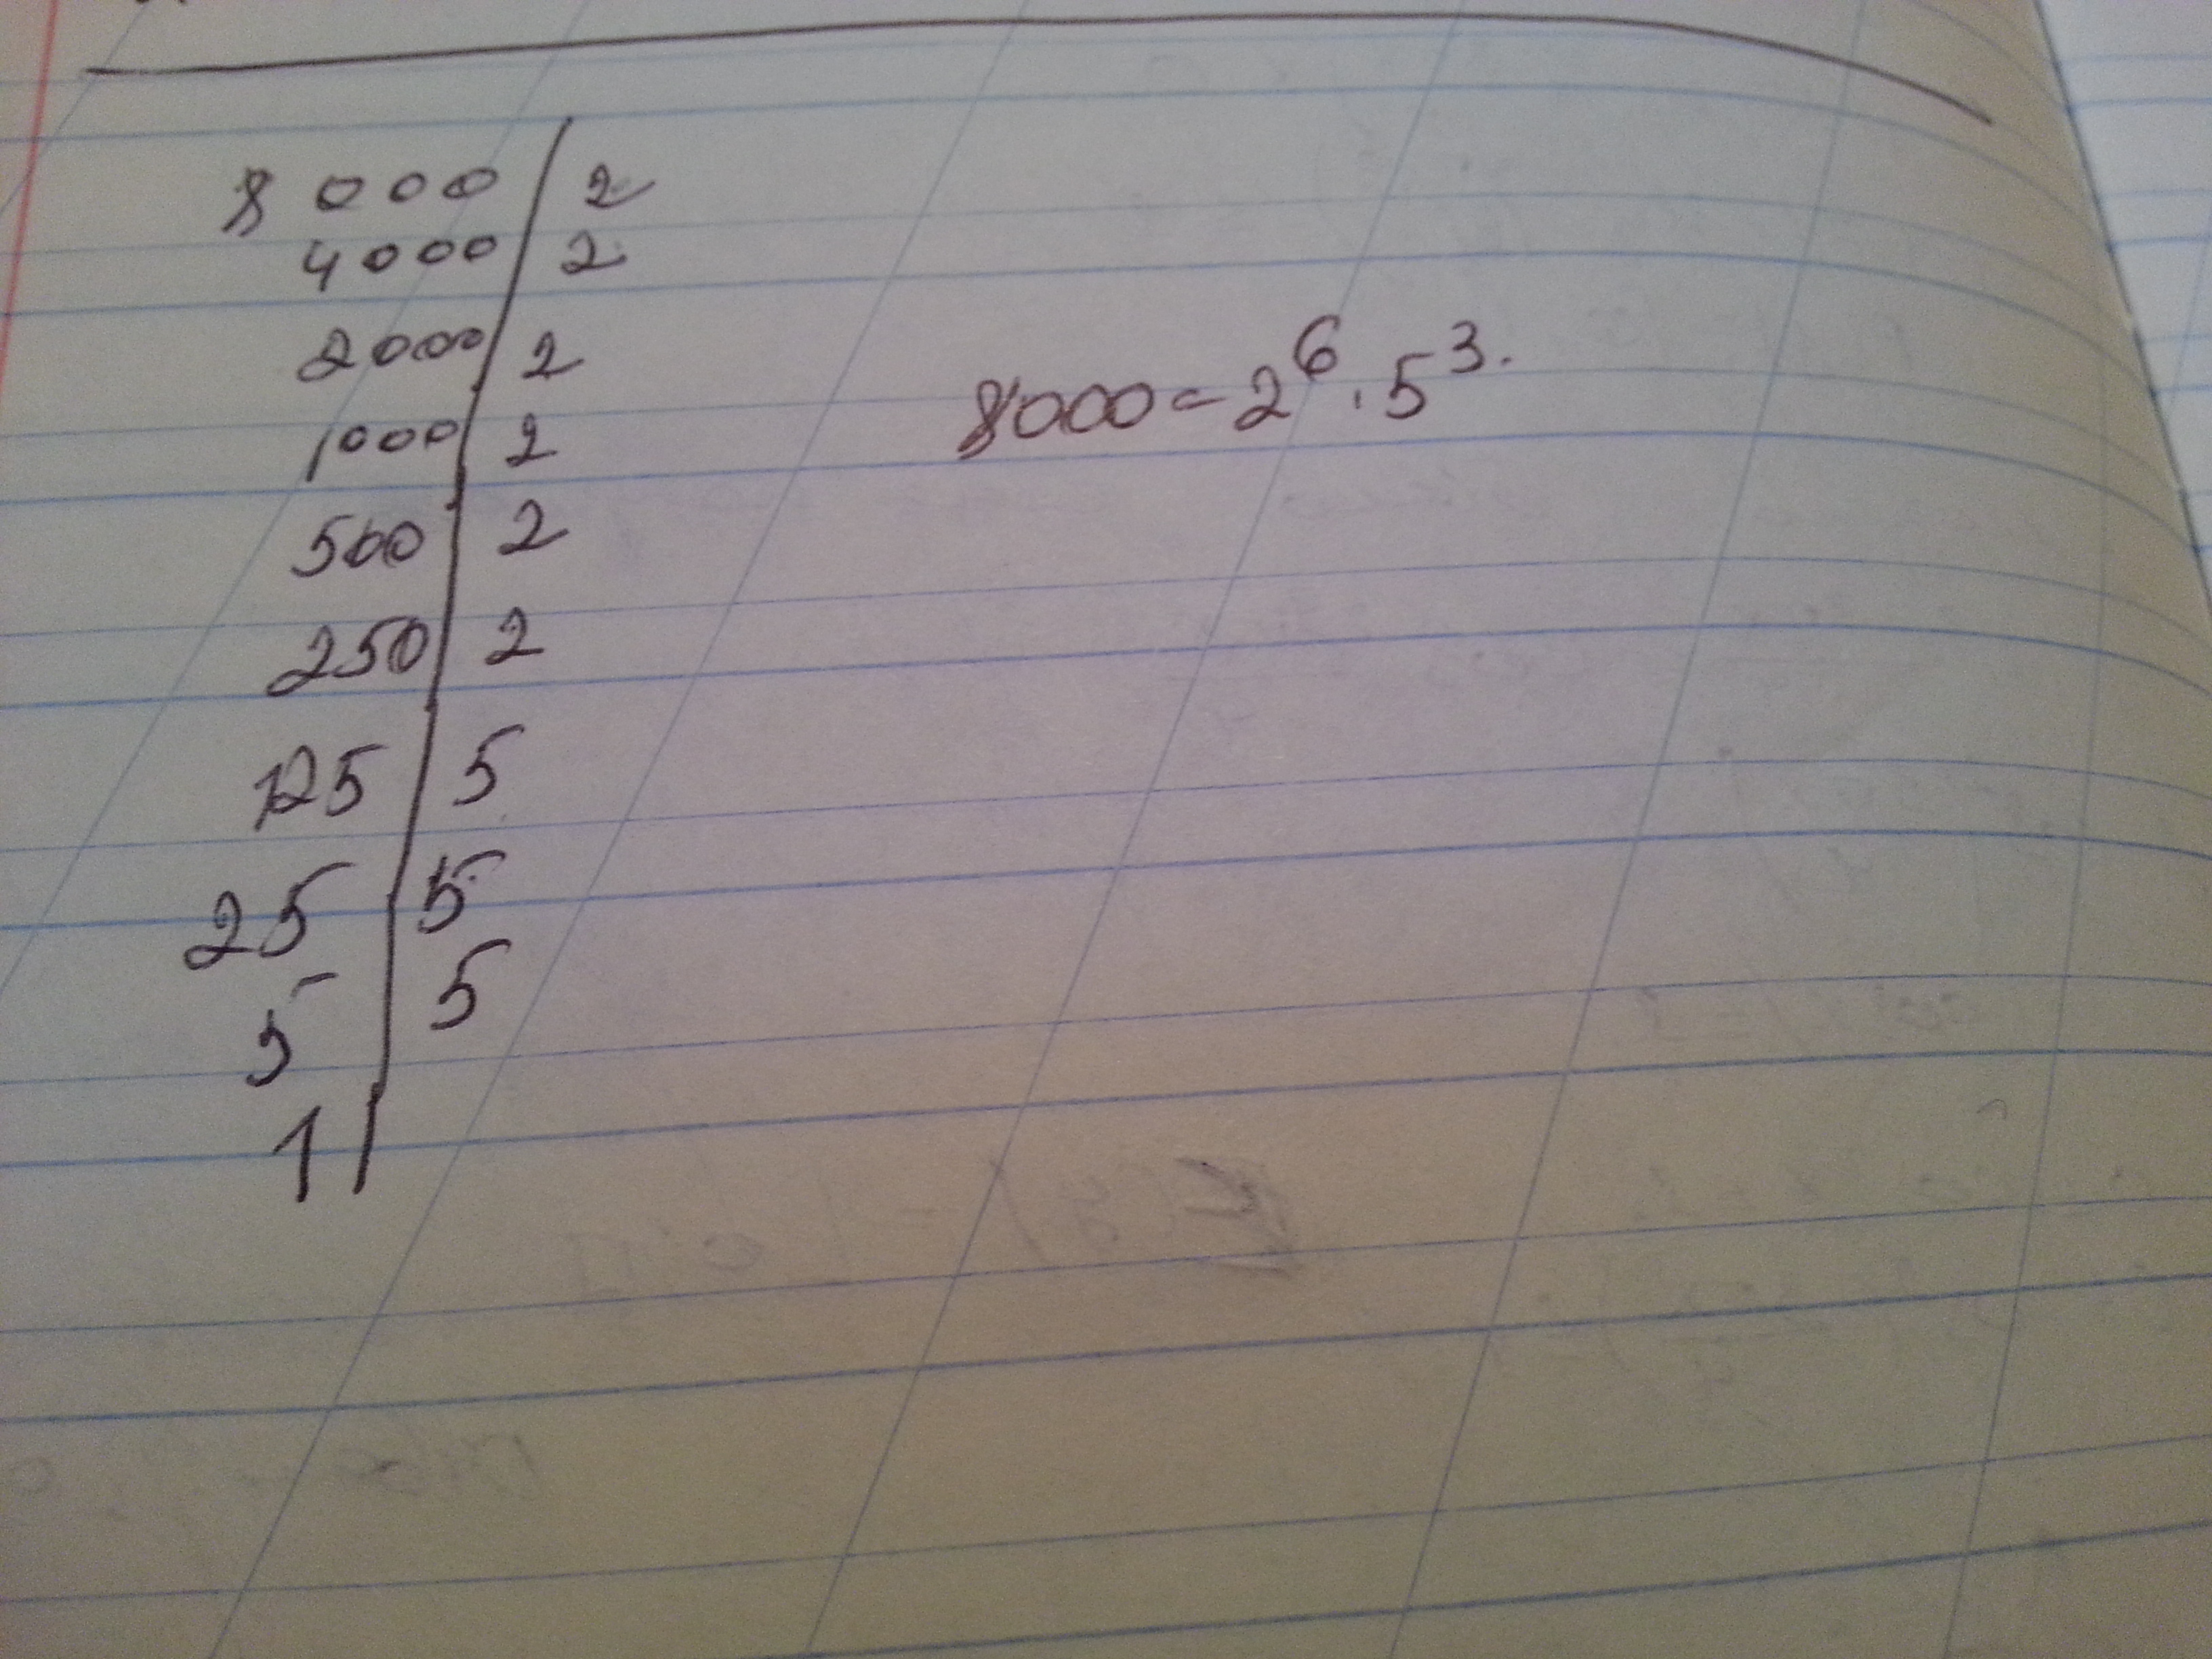 8000 | 2
4000 | 2
2000 | 2
1000 | 2
500 | 2
250 | 2
125 | 5
25 | 5
5 | 5
1 |
8000 = 2⁶ · 5³.